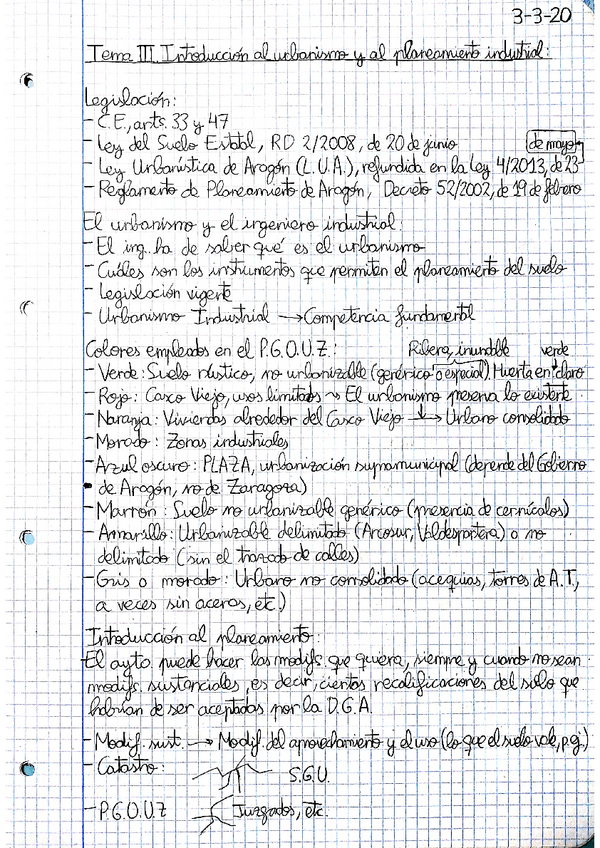 3-3-20
Tema III Introducción al urbanismo y al planeamiento industrial:
Legislación:
- C.E., arts. 33 y 47
- Ley del Suelo Estatal, RD 2/2008, de 20 de junio
- Ley Urbanística de Aragón (L.U.A.), refundida en la Ley 4/2013, de 23 de mayo
- Reglamento de Planeamiento de Aragón, Decreto 52/2002, de 19 de febrero
El urbanismo y el ingeniero industrial:
- El ing. ha de saber qué es el urbanismo
- Cuáles son los instrumentos que permiten el planeamiento del suelo
- Legislación vigente
- Urbanismo Industrial → Competencia fundamental
Colores empleados en el P.G.O.U.Z.: Ribera, inundable verde
- Verde: Suelo rústico, no urbanizable (genérico o especial). Huerta en claro
- Rojo: Casco Viejo, usos limitados ~> El urbanismo preserva lo existente
- Naranja: Viviendas alrededor del Casco Viejo → Urbano consolidado
- Morado: Zonas industriales
- Azul oscuro: PLAZA, urbanización supramunicipal (depende del Gobierno
de Aragón, no de Zaragoza)
- Marrón: Suelo no urbanizable genérico (presencia de cernícalos)
- Amarillo: Urbanizable delimitado (Arcosur, Valdespartera) o no
delimitado (sin el trazado de calles)
- Gris o morado: Urbano no consolidado (acequias, torres de A.T,
a veces sin aceras, etc.)
Introducción al planeamiento:
El ayto. puede hacer las modifs. que quiera, siempre y cuando no sean
modifs. sustanciales, es decir, ciertas recalificaciones del suelo que
habrían de ser aceptadas por la D.G.A.
- Modif. sust. → Modif. del aprovechamiento y el uso (lo que el suelo vale, p.g.)
- Catastro: S.G.U.
- P.G.O.U.Z Juzgados, etc.